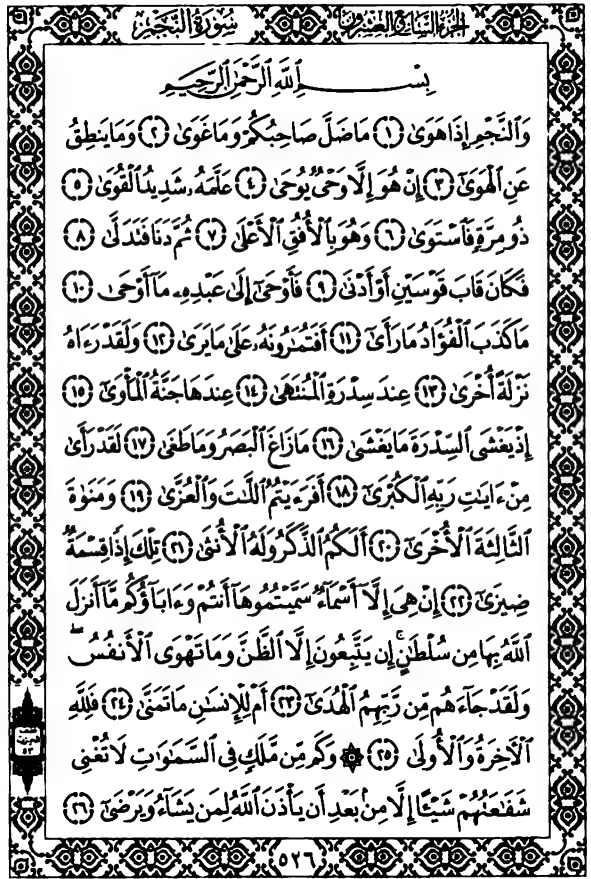 سُورَةُ النَّجْمِ الجُزْءُ السَّابِعُ وَالعِشْرُونَ
بِسْمِ ٱللَّهِ ٱلرَّحْمَٰنِ ٱلرَّحِيمِ
وَٱلنَّجْمِ إِذَا هَوَىٰ ١ مَا ضَلَّ صَاحِبُكُمْ وَمَا غَوَىٰ ٢ وَمَا يَنطِقُ
عَنِ ٱلْهَوَىٰٓ ٣ إِنْ هُوَ إِلَّا وَحْىٌ يُوحَىٰ ٤ عَلَّمَهُۥ شَدِيدُ ٱلْقُوَىٰ ٥
ذُو مِرَّةٍ فَٱسْتَوَىٰ ٦ وَهُوَ بِٱلْأُفُقِ ٱلْأَعْلَىٰ ٧ ثُمَّ دَنَا فَتَدَلَّىٰ ٨
فَكَانَ قَابَ قَوْسَيْنِ أَوْ أَدْنَىٰ ٩ فَأَوْحَىٰٓ إِلَىٰ عَبْدِهِۦ مَآ أَوْحَىٰ ١٠
مَا كَذَبَ ٱلْفُؤَادُ مَا رَأَىٰٓ ١١ أَفَتُمَٰرُونَهُۥ عَلَىٰ مَا يَرَىٰ ١٢ وَلَقَدْ رَءَاهُ
نَزْلَةً أُخْرَىٰ ١٣ عِندَ سِدْرَةِ ٱلْمُنتَهَىٰ ١٤ عِندَهَا جَنَّةُ ٱلْمَأْوَىٰٓ ١٥
إِذْ يَغْشَى ٱلسِّدْرَةَ مَا يَغْشَىٰ ١٦ مَا زَاغَ ٱلْبَصَرُ وَمَا طَغَىٰ ١٧ لَقَدْ رَأَىٰ
مِنْ ءَايَٰتِ رَبِّهِ ٱلْكُبْرَىٰٓ ١٨ أَفَرَءَيْتُمُ ٱللَّٰتَ وَٱلْعُزَّىٰ ١٩ وَمَنَوٰةَ
ٱلثَّالِثَةَ ٱلْأُخْرَىٰٓ ٢٠ أَلَكُمُ ٱلذَّكَرُ وَلَهُ ٱلْأُنثَىٰ ٢١ تِلْكَ إِذًا قِسْمَةٌ
ضِيزَىٰٓ ٢٢ إِنْ هِىَ إِلَّآ أَسْمَآءٌ سَمَّيْتُمُوهَآ أَنتُمْ وَءَابَآؤُكُم مَّآ أَنزَلَ
ٱللَّهُ بِهَا مِن سُلْطَٰنٍ ۚ إِن يَتَّبِعُونَ إِلَّا ٱلظَّنَّ وَمَا تَهْوَى ٱلْأَنفُسُ ۖ
وَلَقَدْ جَآءَهُم مِّن رَّبِّهِمُ ٱلْهُدَىٰٓ ٢٣ أَمْ لِلْإِنسَٰنِ مَا تَمَنَّىٰ ٢٤ فَلِلَّهِ
ٱلْءَاخِرَةُ وَٱلْأُولَىٰ ٢٥ ۞ وَكَم مِّن مَّلَكٍ فِى ٱلسَّمَٰوَٰتِ لَا تُغْنِى
شَفَٰعَتُهُمْ شَيْـًٔا إِلَّا مِنۢ بَعْدِ أَن يَأْذَنَ ٱللَّهُ لِمَن يَشَآءُ وَيَرْضَىٰٓ ٢٦
٥٣
٥٢٦